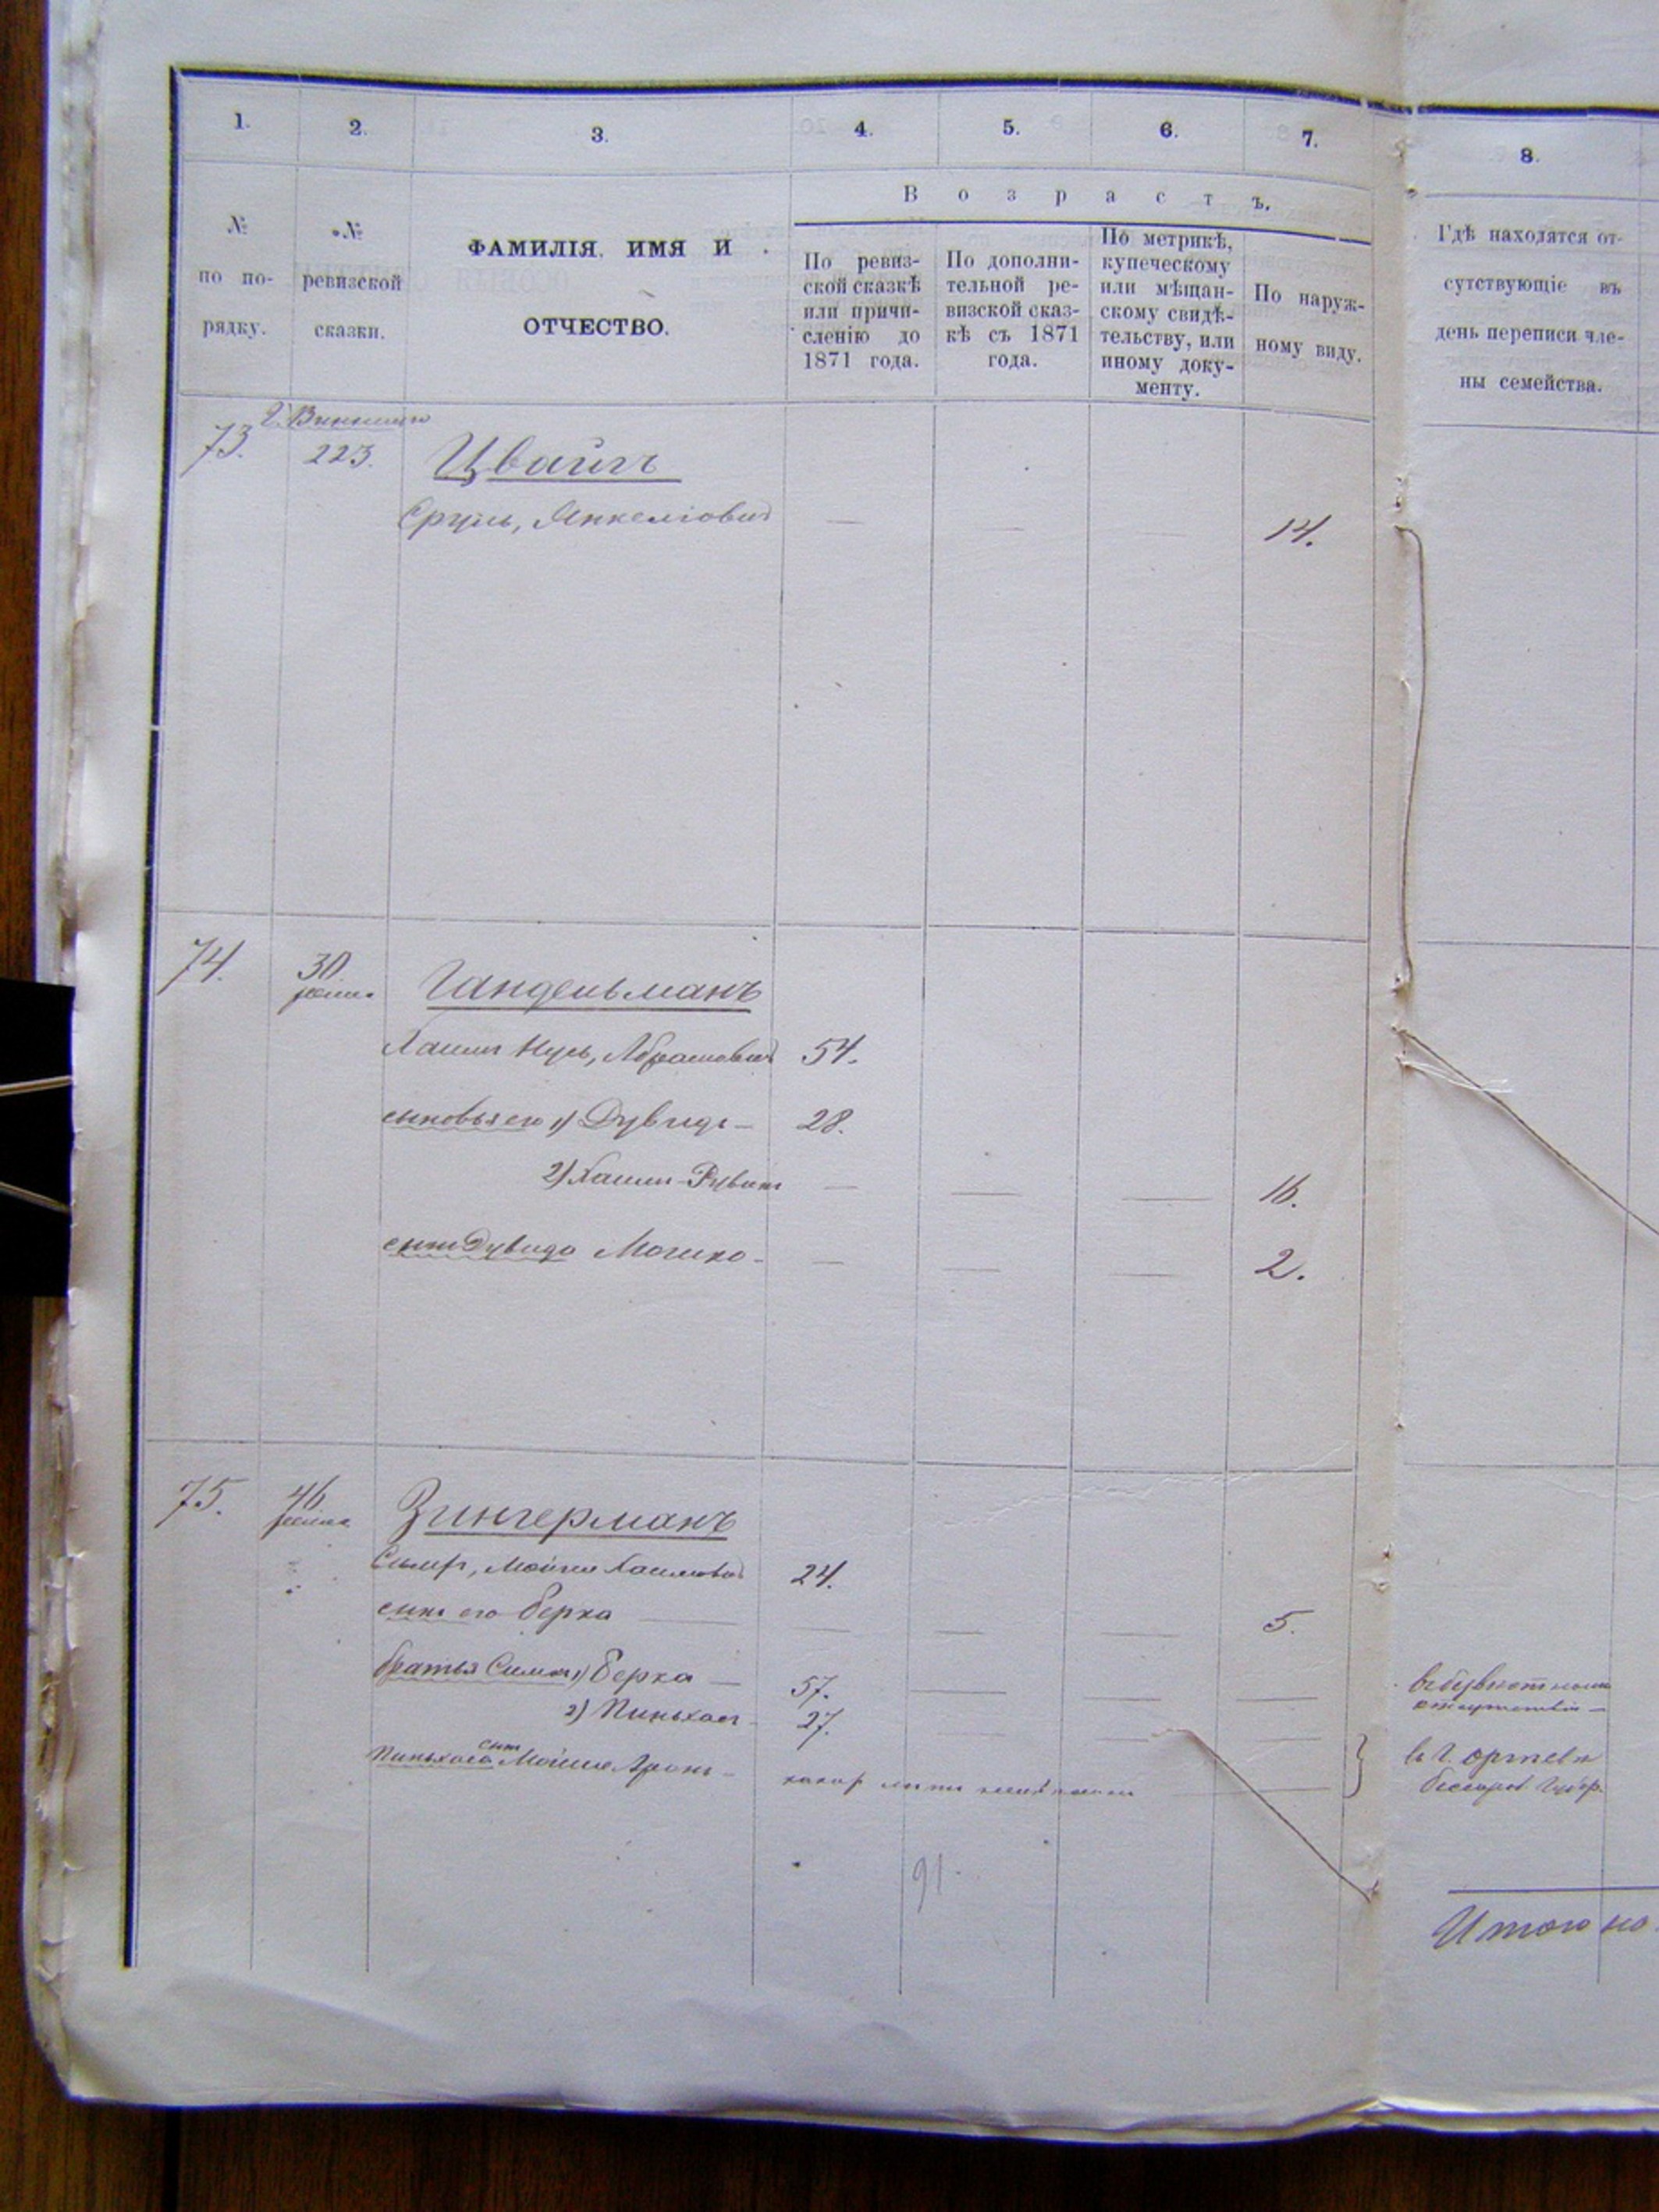 1. 2. 3. 4. 5. 6. 7. 8.
В о з р а с т ъ.
№
по по-
рядку.
№
ревизской
сказки.
ФАМИЛІЯ, ИМЯ И
ОТЧЕСТВО.
По ревиз-
ской сказкѣ
или причи-
сленію до
1871 года.
По дополни-
тельной ре-
визской сказ-
кѣ съ 1871
года.
По метрикѣ,
купеческому
или мѣщан-
скому свидѣ-
тельству, или
иному доку-
менту.
По наруж-
ному виду.
Гдѣ находятся от-
сутствующіе въ
день переписи чле-
ны семейства.
73. 223. Цвайгъ
Сруль, Янкеліовичъ — — — 14.
74. 30. Гандельманъ
Хаимъ Нусь, Абрамовичъ 54.
сыновья его 1) Дувидъ — 28.
2) Хаимъ-Рувинъ — — — 16.
сынъ Дувида Мошко — — — — 2.
75. 46 Зингерманъ
Мойше Хаимовичъ 24.
сынъ его Берка — — — — 5.
братья 1) Берка — 57. — — — въ безвѣстномъ
отсутствіи —
2) Пинькасъ — 27. — — —
сынъ
Пинькаса Мойше Аронъ — — — въ г. Оргѣевѣ
Бессараб. Губер.
91.
Итого на